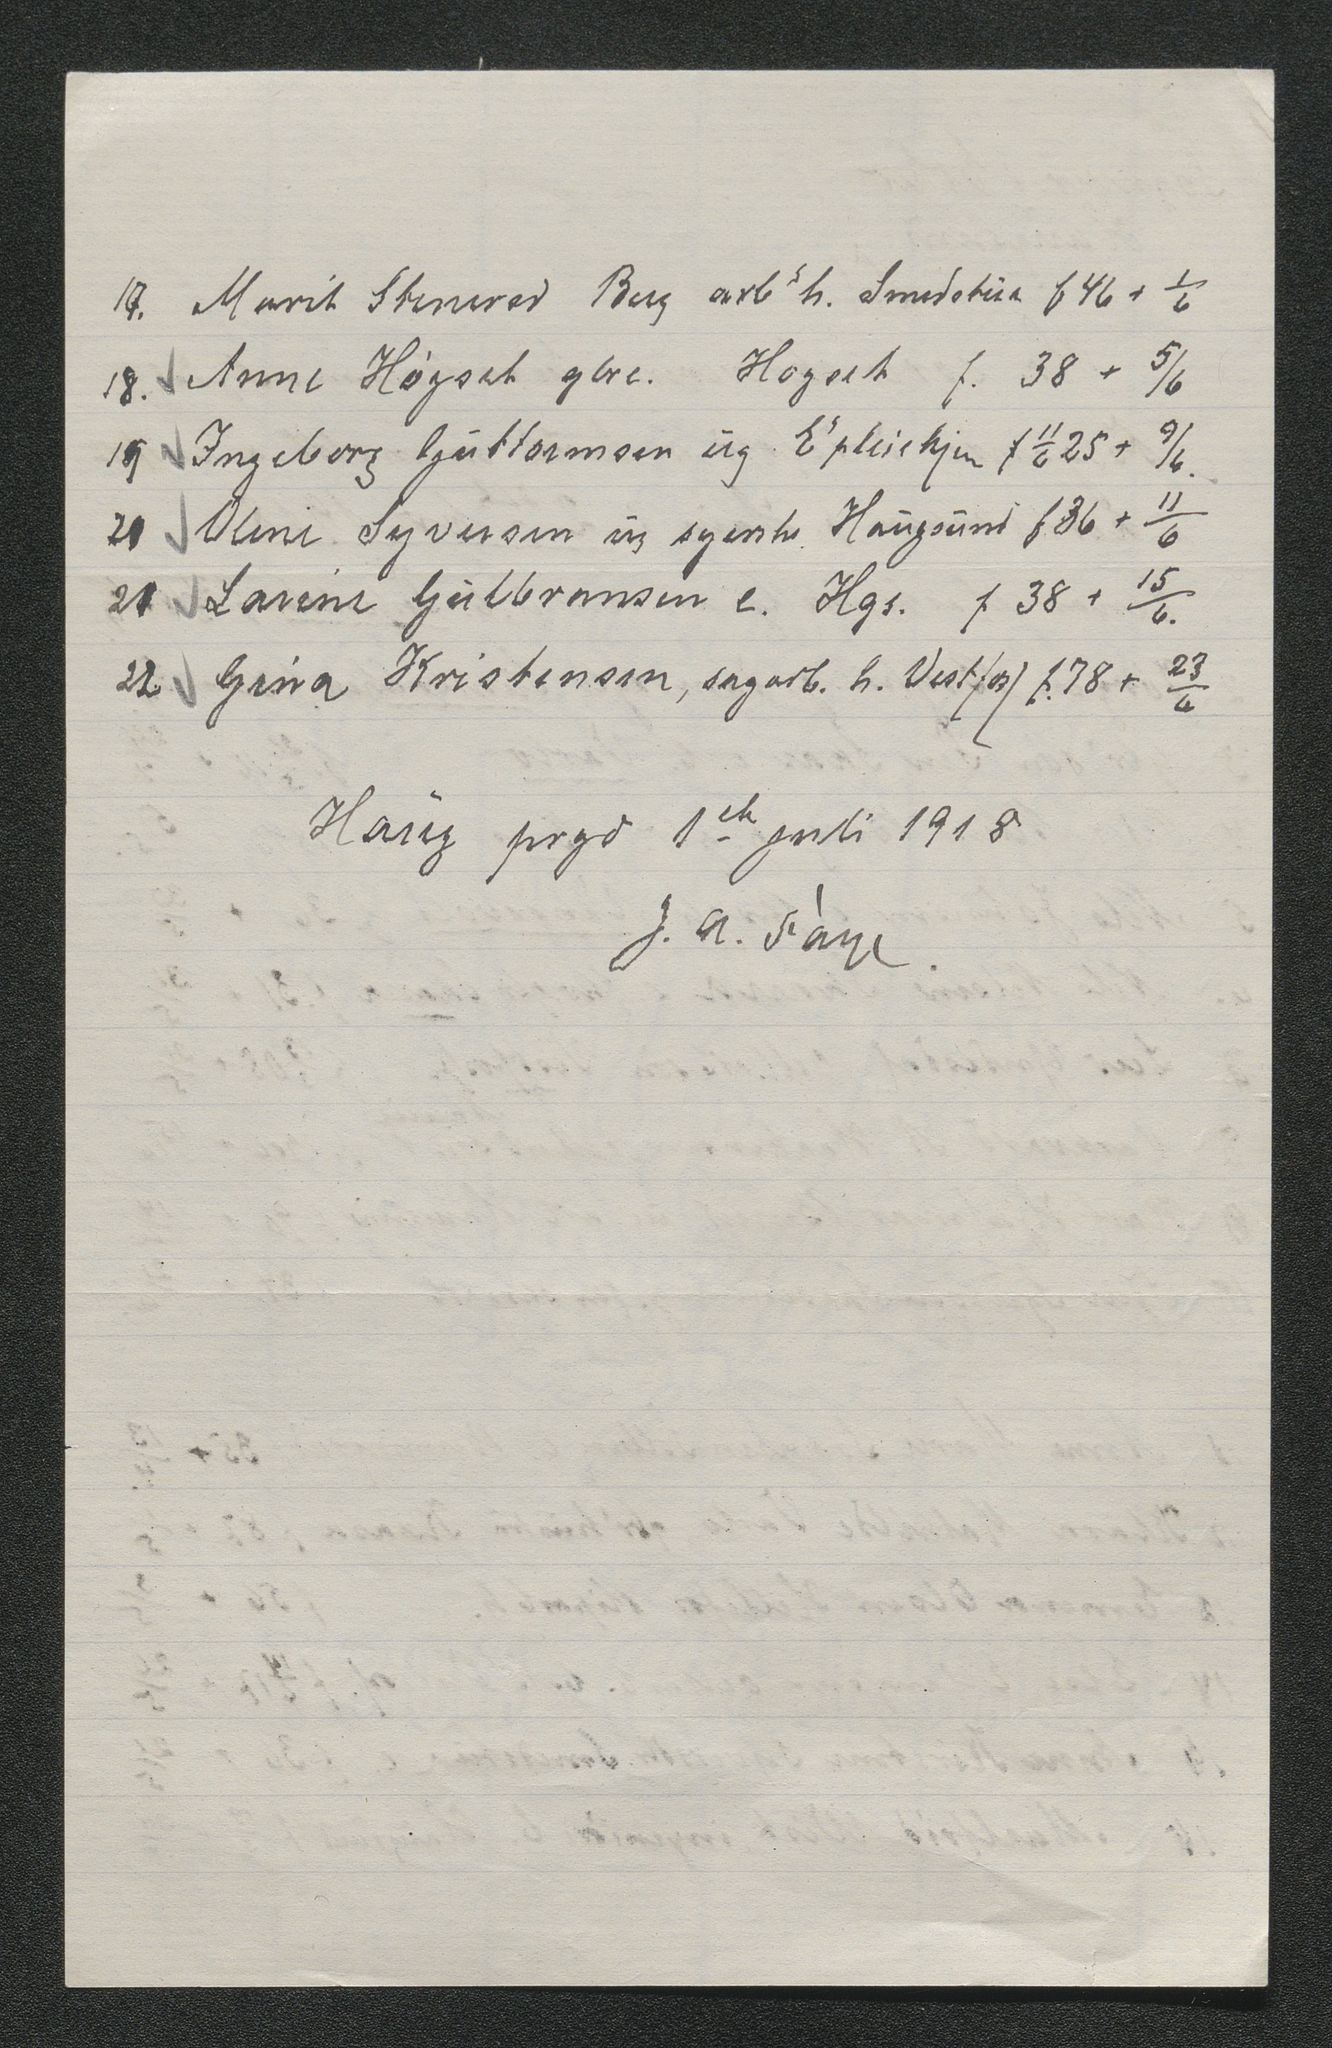 17. Marit Stenerud Berg arbs h. Smedstua f 46 + 1/6
18. Anne Högset gbre. Hogset f. 38 + 5/6
19 Ingeborg Guttormsen ug f 11/6 25 + 9/6.
20 Oline Syversen ug syerske. Haugsund f 36 + 11/6
21 Lavine Gulbransen e. Hgs. f 38 + 15/6.
22 Gina Kristensen, sagarb. h. Vestfos f. 78 + 23/6
Haug prgd 1ste juli 1918
J. A. Faye.